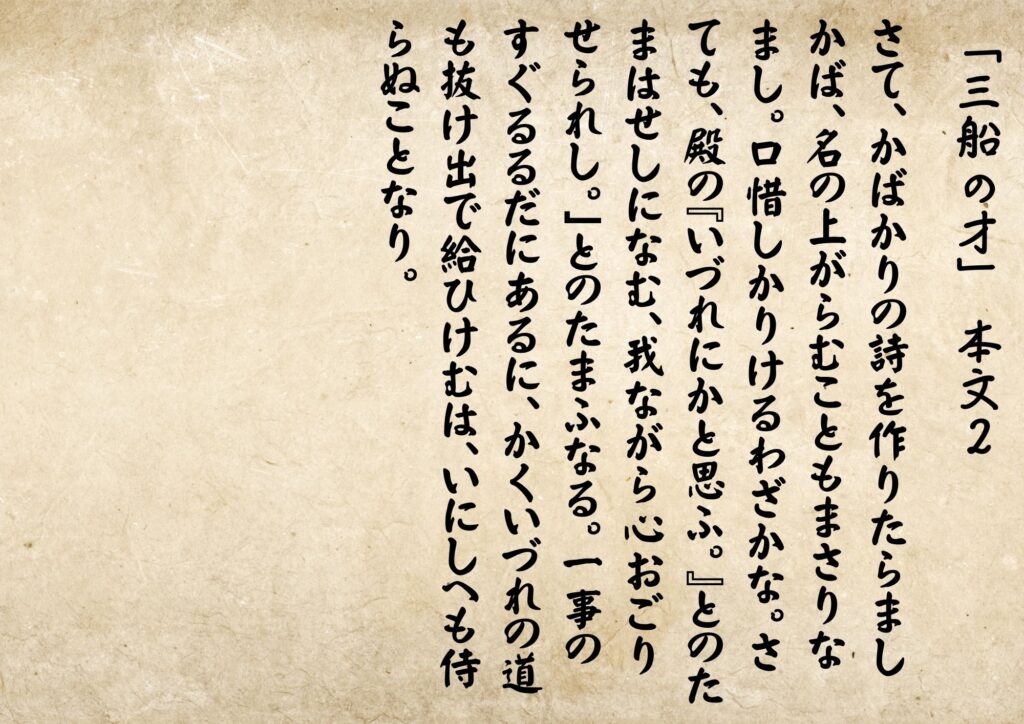 「三船の才」 本文2
さて、かばかりの詩を作りたらまし
かば、名の上がらむこともまさりな
まし。口惜しかりけるわざかな。さ
ても、殿の『いづれにかと思ふ。』とのた
まはせしになむ、我ながら心おごり
せられし。」とのたまふなる。一事の
すぐるるだにあるに、かくいづれの道
も抜け出で給ひけむは、いにしへも侍
らぬことなり。